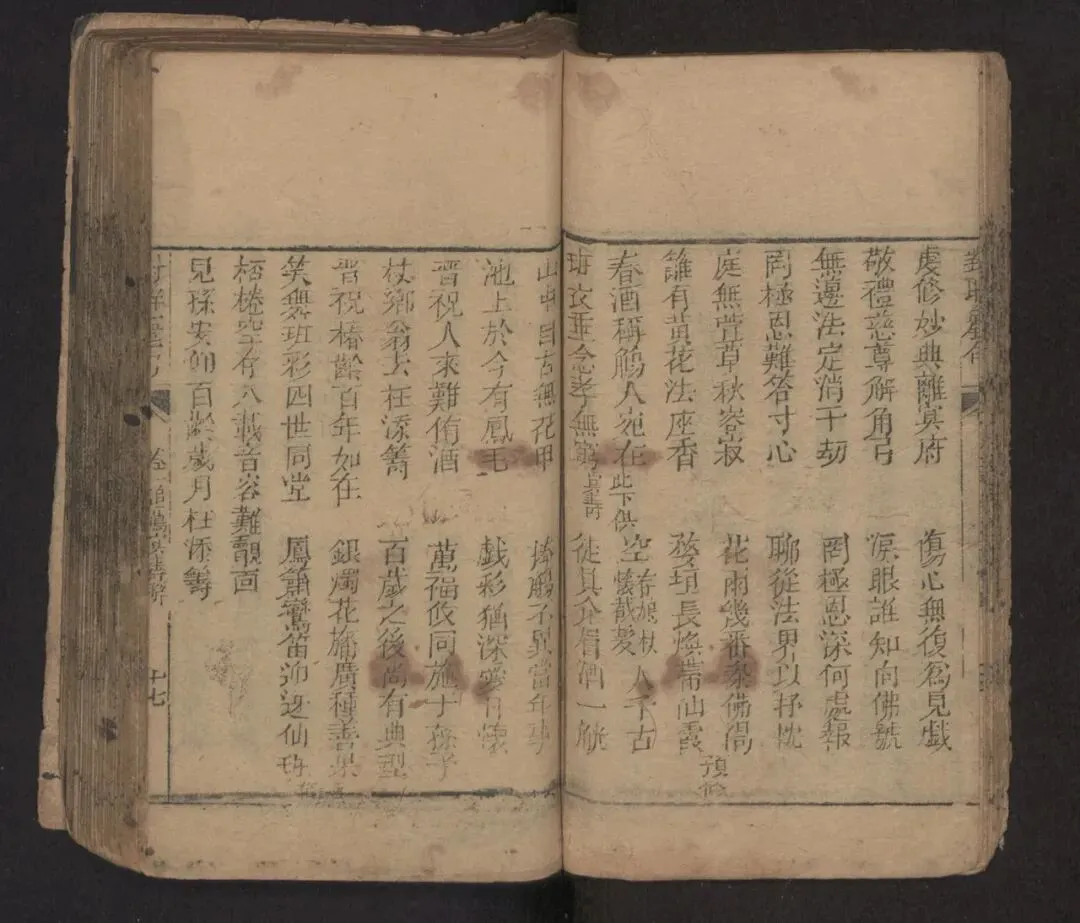 虔修妙典離冥府 傷心無復為兒戲
敬禮慈尊解角弓 淚眼誰知向佛號
無邊法定消千劫 罔極恩深何處報
罔極恩難答寸心 聊從法界以抒忱
庭無萱草秋容寂 花雨幾番黍佛偈
籬有黃花法座香 婺垣長煥帶仙霞 預修
春酒稱觴人宛在 此下供 空 人千古
班衣垂念孝無窮 徒具介眉酒一觥
自古無花甲 觴不異當年事
池上於今有鳳毛 戲彩猶深愛日懷
晋祝人來難侑酒 萬福攸同施于孫子
杖鄉翁去在添籌 百歲之後尚有典型
晋祝椿齡百年如在 銀燭花旛廣種善果
笑舞班彩四世同堂 鳳簫鸞笛迎迓仙
桮棬空存八載音容難覿面
兒孫安仰百齡歲月枉添籌
卷一
十七